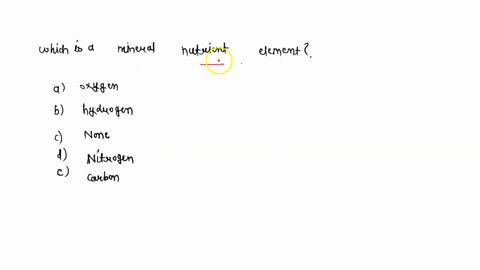 which is a mineral nutrient element?
a) oxygen
b) hydrogen
c) None
d) Nitrogen
e) carbon